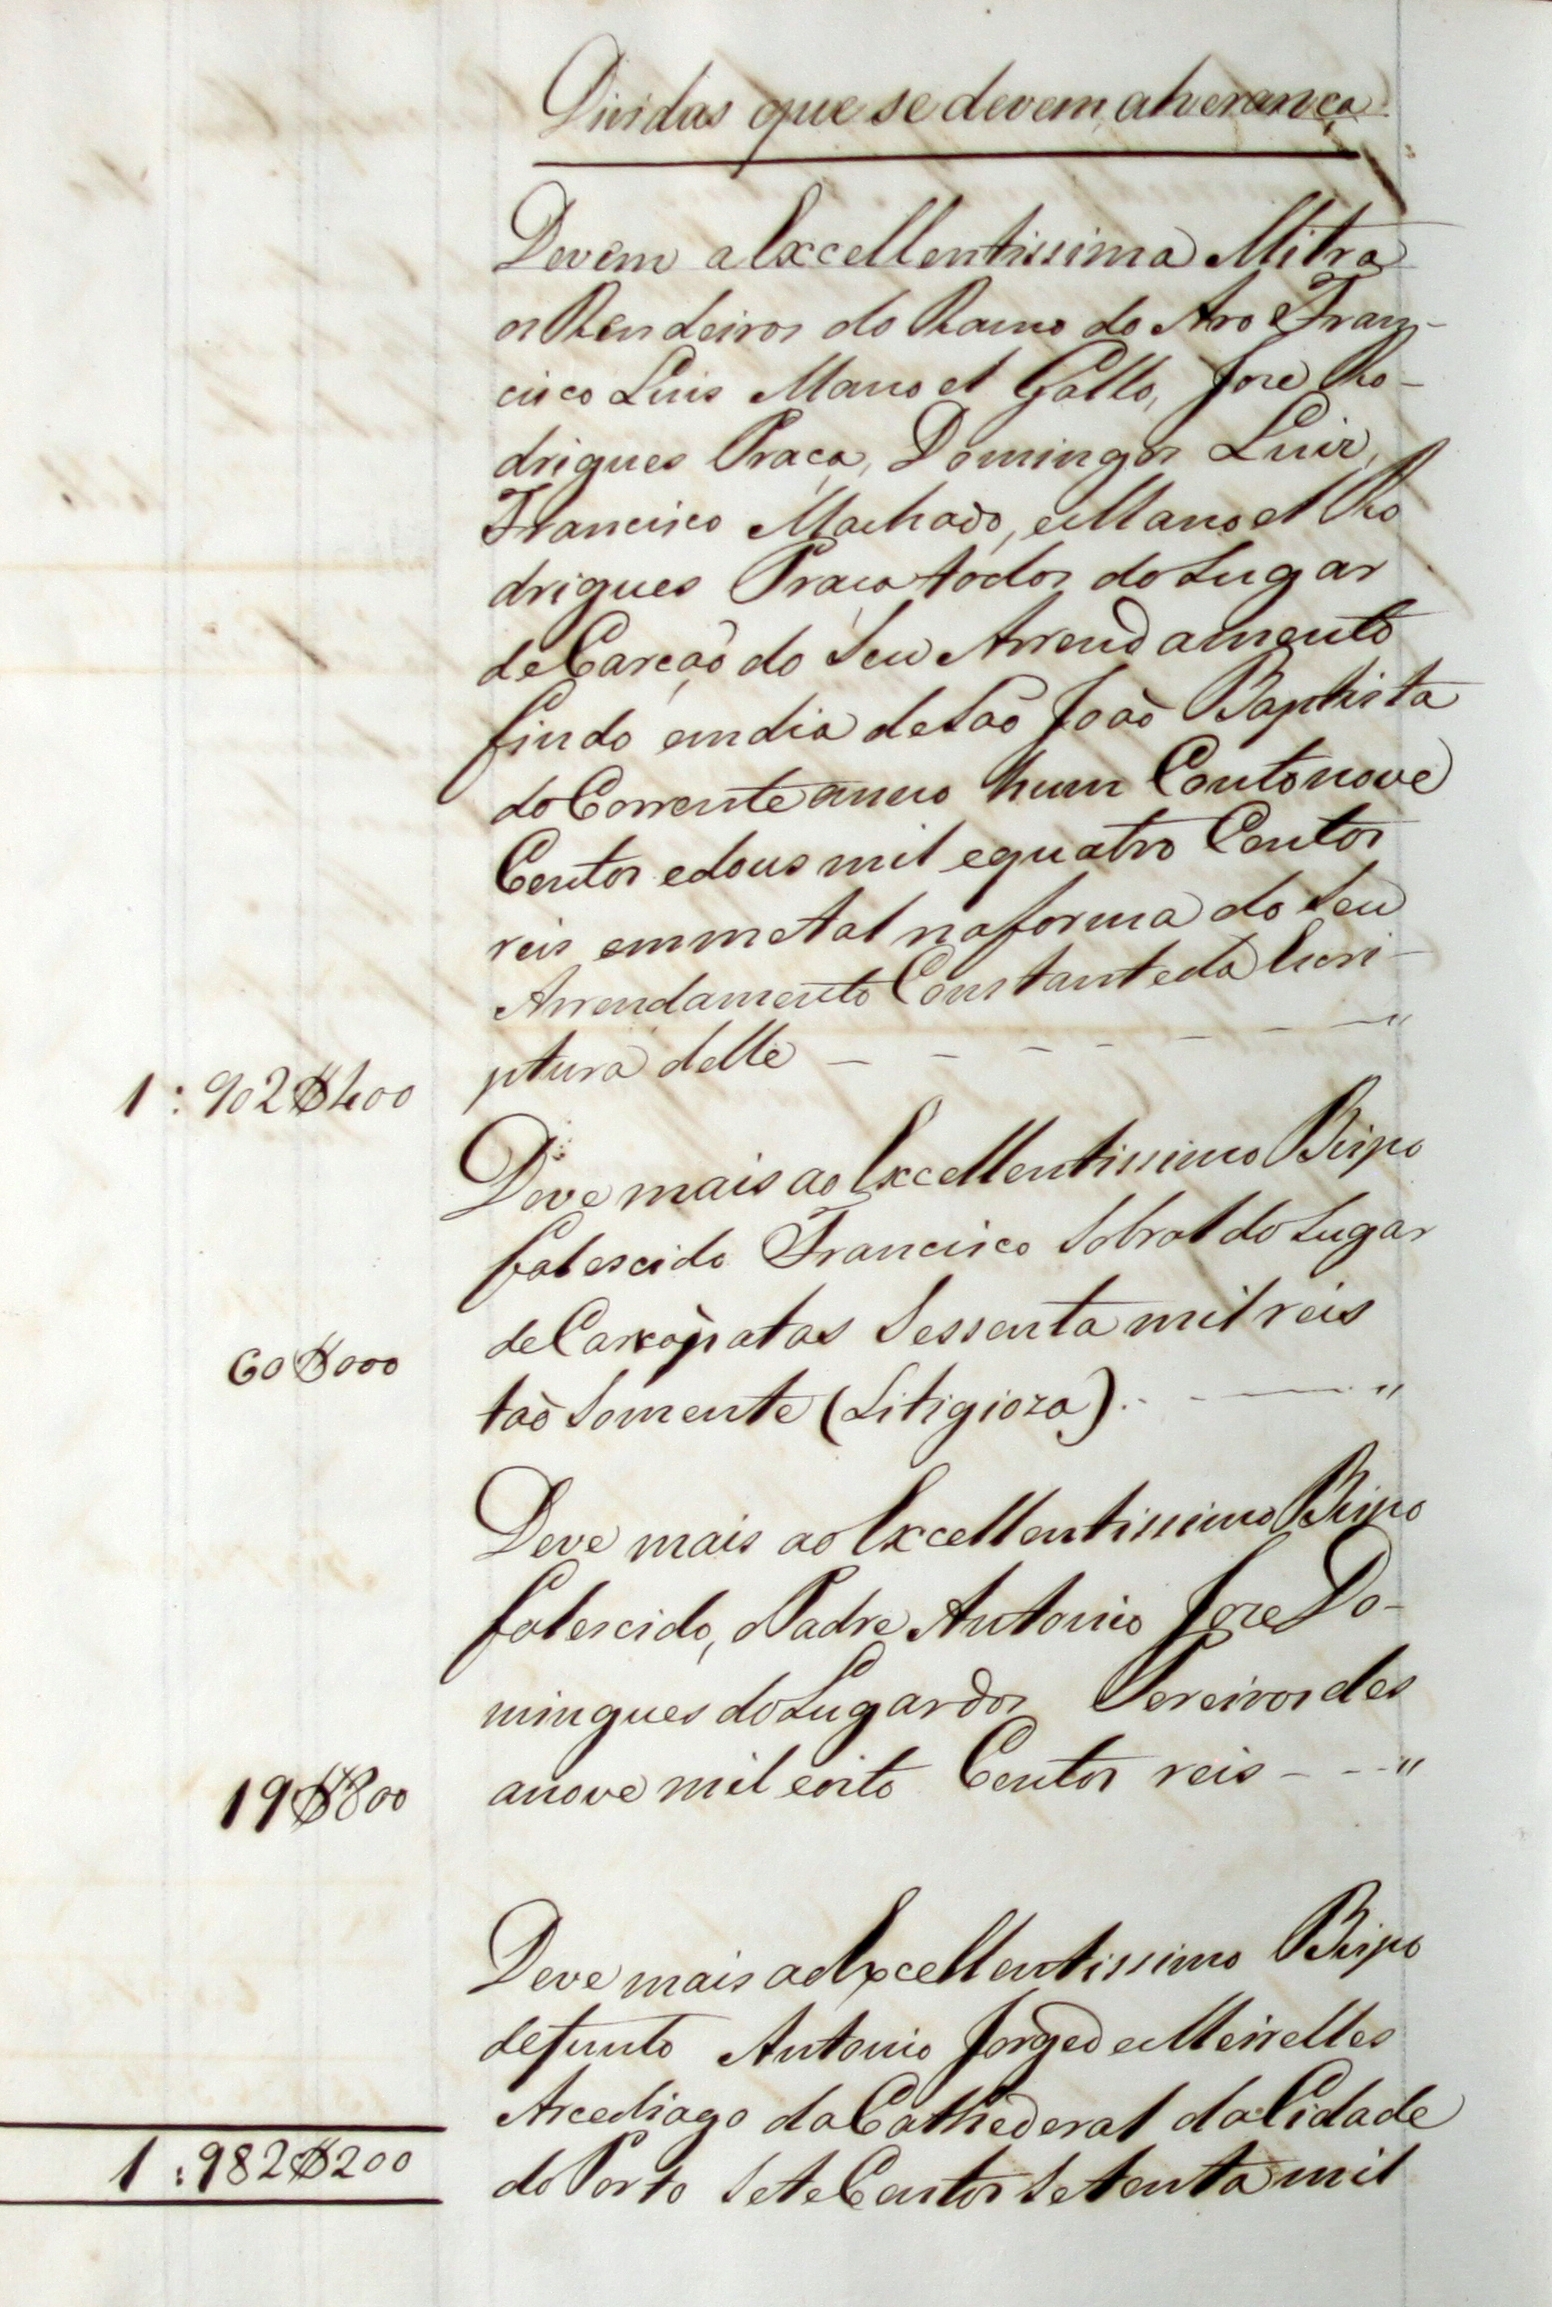 Dividas que se devem a herança
Devem a Excellentissima Mitra
os Rendeiros do Ramo do Aro Fran-
cisco Luis Manoel Gallo, Joze Ro-
drigues Praça, Domingos Luiz,
Francisco Machado, e Manoel Ro
drigues Praça todos do Lugar
de Carção do Seu Arrendamento
findo em dia de São João Baptista
do Corrente anno hum Conto nove
Centos e dous mil e quatro Centos
reis em metal na forma do Seu
Arrendamento Constante da Escri-
ptura delle - - - - - - "
1:902$400
Deve mais ao Excellentissimo Bispo
falescido Francisco Sobral do Lugar
de Carçòpatas Sessenta mil reis
60$000
tão Somente (Litigioza). - - "
Deve mais ao Excellentissimo Bispo
falescido, o Padre Antonio Joze Do-
mingues do Lugar dos Pereiros des
anove mil e oito Centos reis - - - "
19$800
Deve mais ao Excellentissimo Bispo
defunto Antonio Jorge de Meirelles
Arcediago da Cathederal da Cidade
do Porto Sete Centos Setenta mil
1:982$200